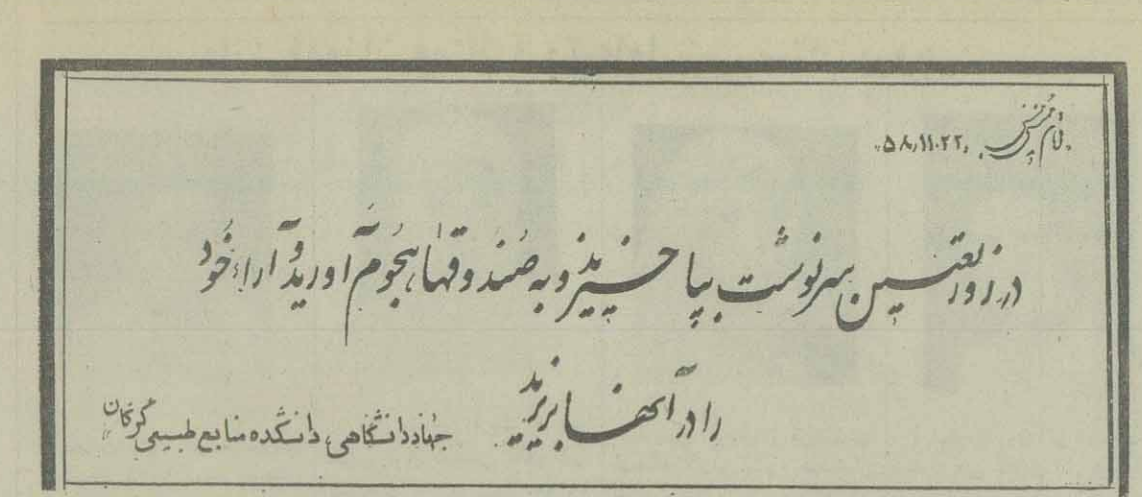 «امام خمینی» «۵۸٫۱۱٫۲۲»
در روز تعیین سرنوشت بپا خیزید و به صندوقها هجوم آورید و آراء خود
را در آنها بریزید
جهاد دانشگاهی، دانشکده منابع طبیعی گرگان